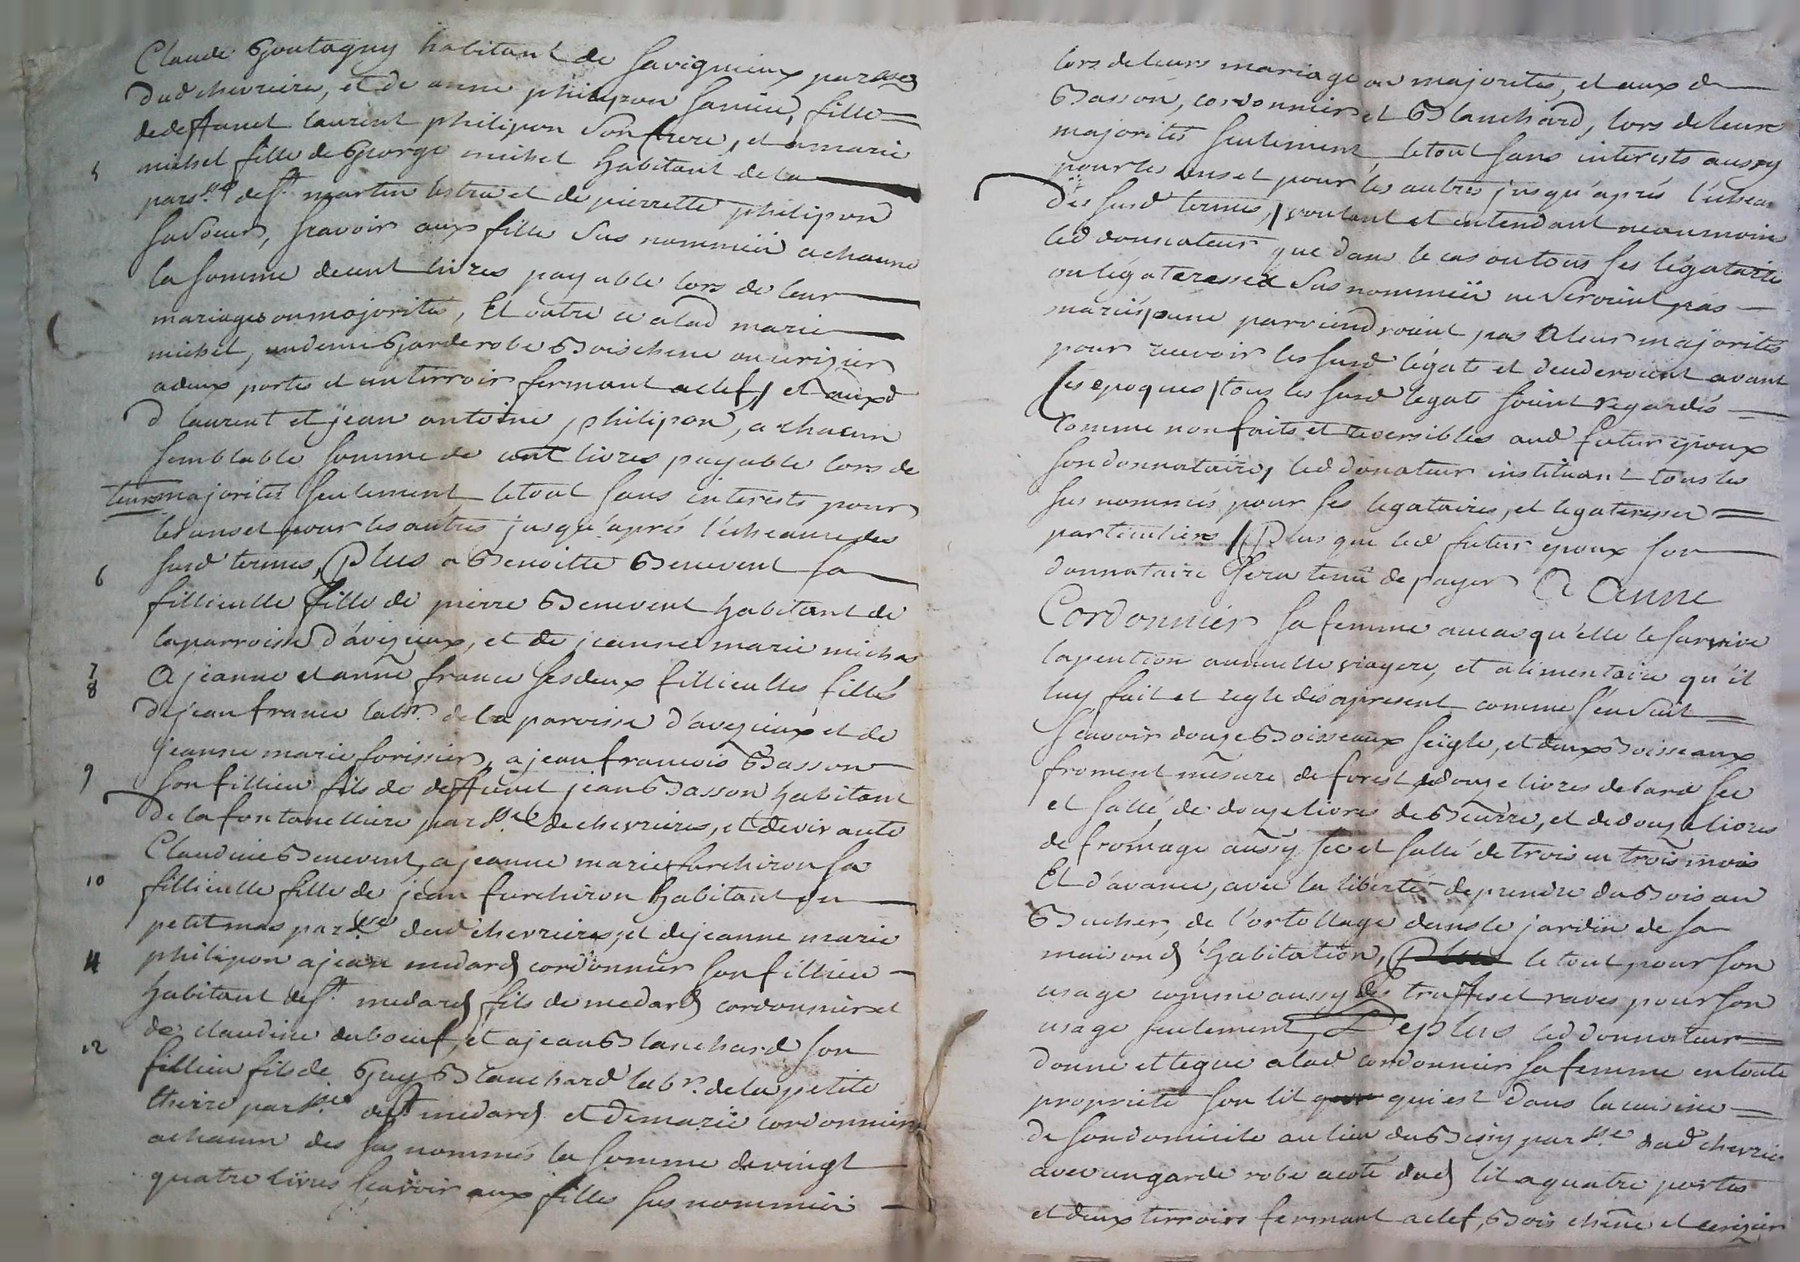 Claude Goutagny habitant de Savignieux parsse
dud chevriere, et de anne philipon sa niéce, fille
de deffunct laurent philipon son frere, et a marie
5 michel fille de George michel habitant de la
parsse de st martin lestra et de pierrette philipon
sa soeur, scavoir aux filles sus nommées a chacune
la somme de cent livres payable lors de leur
mariages ou majorités, Et outre ce a lad marie
michel, une garderobe Bois chene ou cerizier
a deux portes et un terroir fermant a clef, et auxd
d laurent et jean antoine philipon, a chacun
semblable somme de cent livres payable lors de
leurs majorités seulement le tout sans interests pour
les uns et pour les autres jusqu'aprés l'écheance des
6 susd termes, Plus a Benoitte Benevent sa
fillieulle fille de pierre Benevent habitant de
la parroisse d'aveizieux, et de jeanne marie michas
7 8 A jeanne et anne france ses deux fillieulles filles
de jean france labr de la paroisse d'aveizieux et de
jeanne marie forissier, a jean francois Basson
9 son fillieu fils de deffunct jean Basson habitant
de la fontanelliere parsse de chevrieres, et de vivante
Claudine Benevent, a jeanne marie furchiron sa
10 fillieulle fille de jean furchiron habitant du
petit mas parsse dud chevrieres, et de jeanne marie
11 philipon a jean medard cordonnier son fillieu
habitant de st medard fils de medard cordonnier et
de claudine duboeuf, et a jean Blanchard son
12 fillieu fils de Guy Blanchard labr de la petite
therre parsse de st medard et de marie cordonnier
a chacun des sus nommés la somme de vingt
quatre livres scavoir aux filles sus nommées
lors de leurs mariage ou majorités, et aux d
Basson, cordonnier et Blanchard, lors de leurs
majorités seulement, le tout sans interests aussy
pour les uns et pour les autres jusqu'aprés l'échean
des susd termes, voulant et entendant neanmoins
led donnateur que dans le cas ou tous ses légataires
ou légateresses sus nommées ne seroient pas
mariés, ou ne parviendroient pas a leurs majorités
pour recevoir les susd légats et décederoient avant
ses epoques, tous les susd légats soient regardés
comme non faits et reversibles aud futur époux
son donnataire, led donateur instituant tous les
sus nommés pour ses legataires, et legateresses
particuliers, Plus que led futur epoux son
donnataire sera tenû de payer A Anne
Cordonnier sa femme au cas qu'elle le survive
la pention annuelle viagere, et alimentaire qu'il
luy fait et regle dés apresent comme s'ensuit
Scavoir douze Boisseaux seigle, et deux Boisseaux
froment mesure de forest de douze livres de lard sec
et sallé, de douze livres de Beurre, et de douze livres
de fromage aussy sec et sallé de trois en trois mois
Et d'avance, avec la liberté de prendre du Bois au
Bucher, de l'ortollage dans le jardin de sa
maison d'habitation, le tout pour son
usage comme aussy des truffes et raves pour son
usage seulement, plus led donnateur
donne et legue a lad cordonnier sa femme en toute
proprieté son lit qui est dans la cuisine
de son domicile au lieu du parsse dud chevrie
avec un garde robe a coté dud lit a quatre portes
et deux terroirs fermant a clef, Bois chêne et cerizier